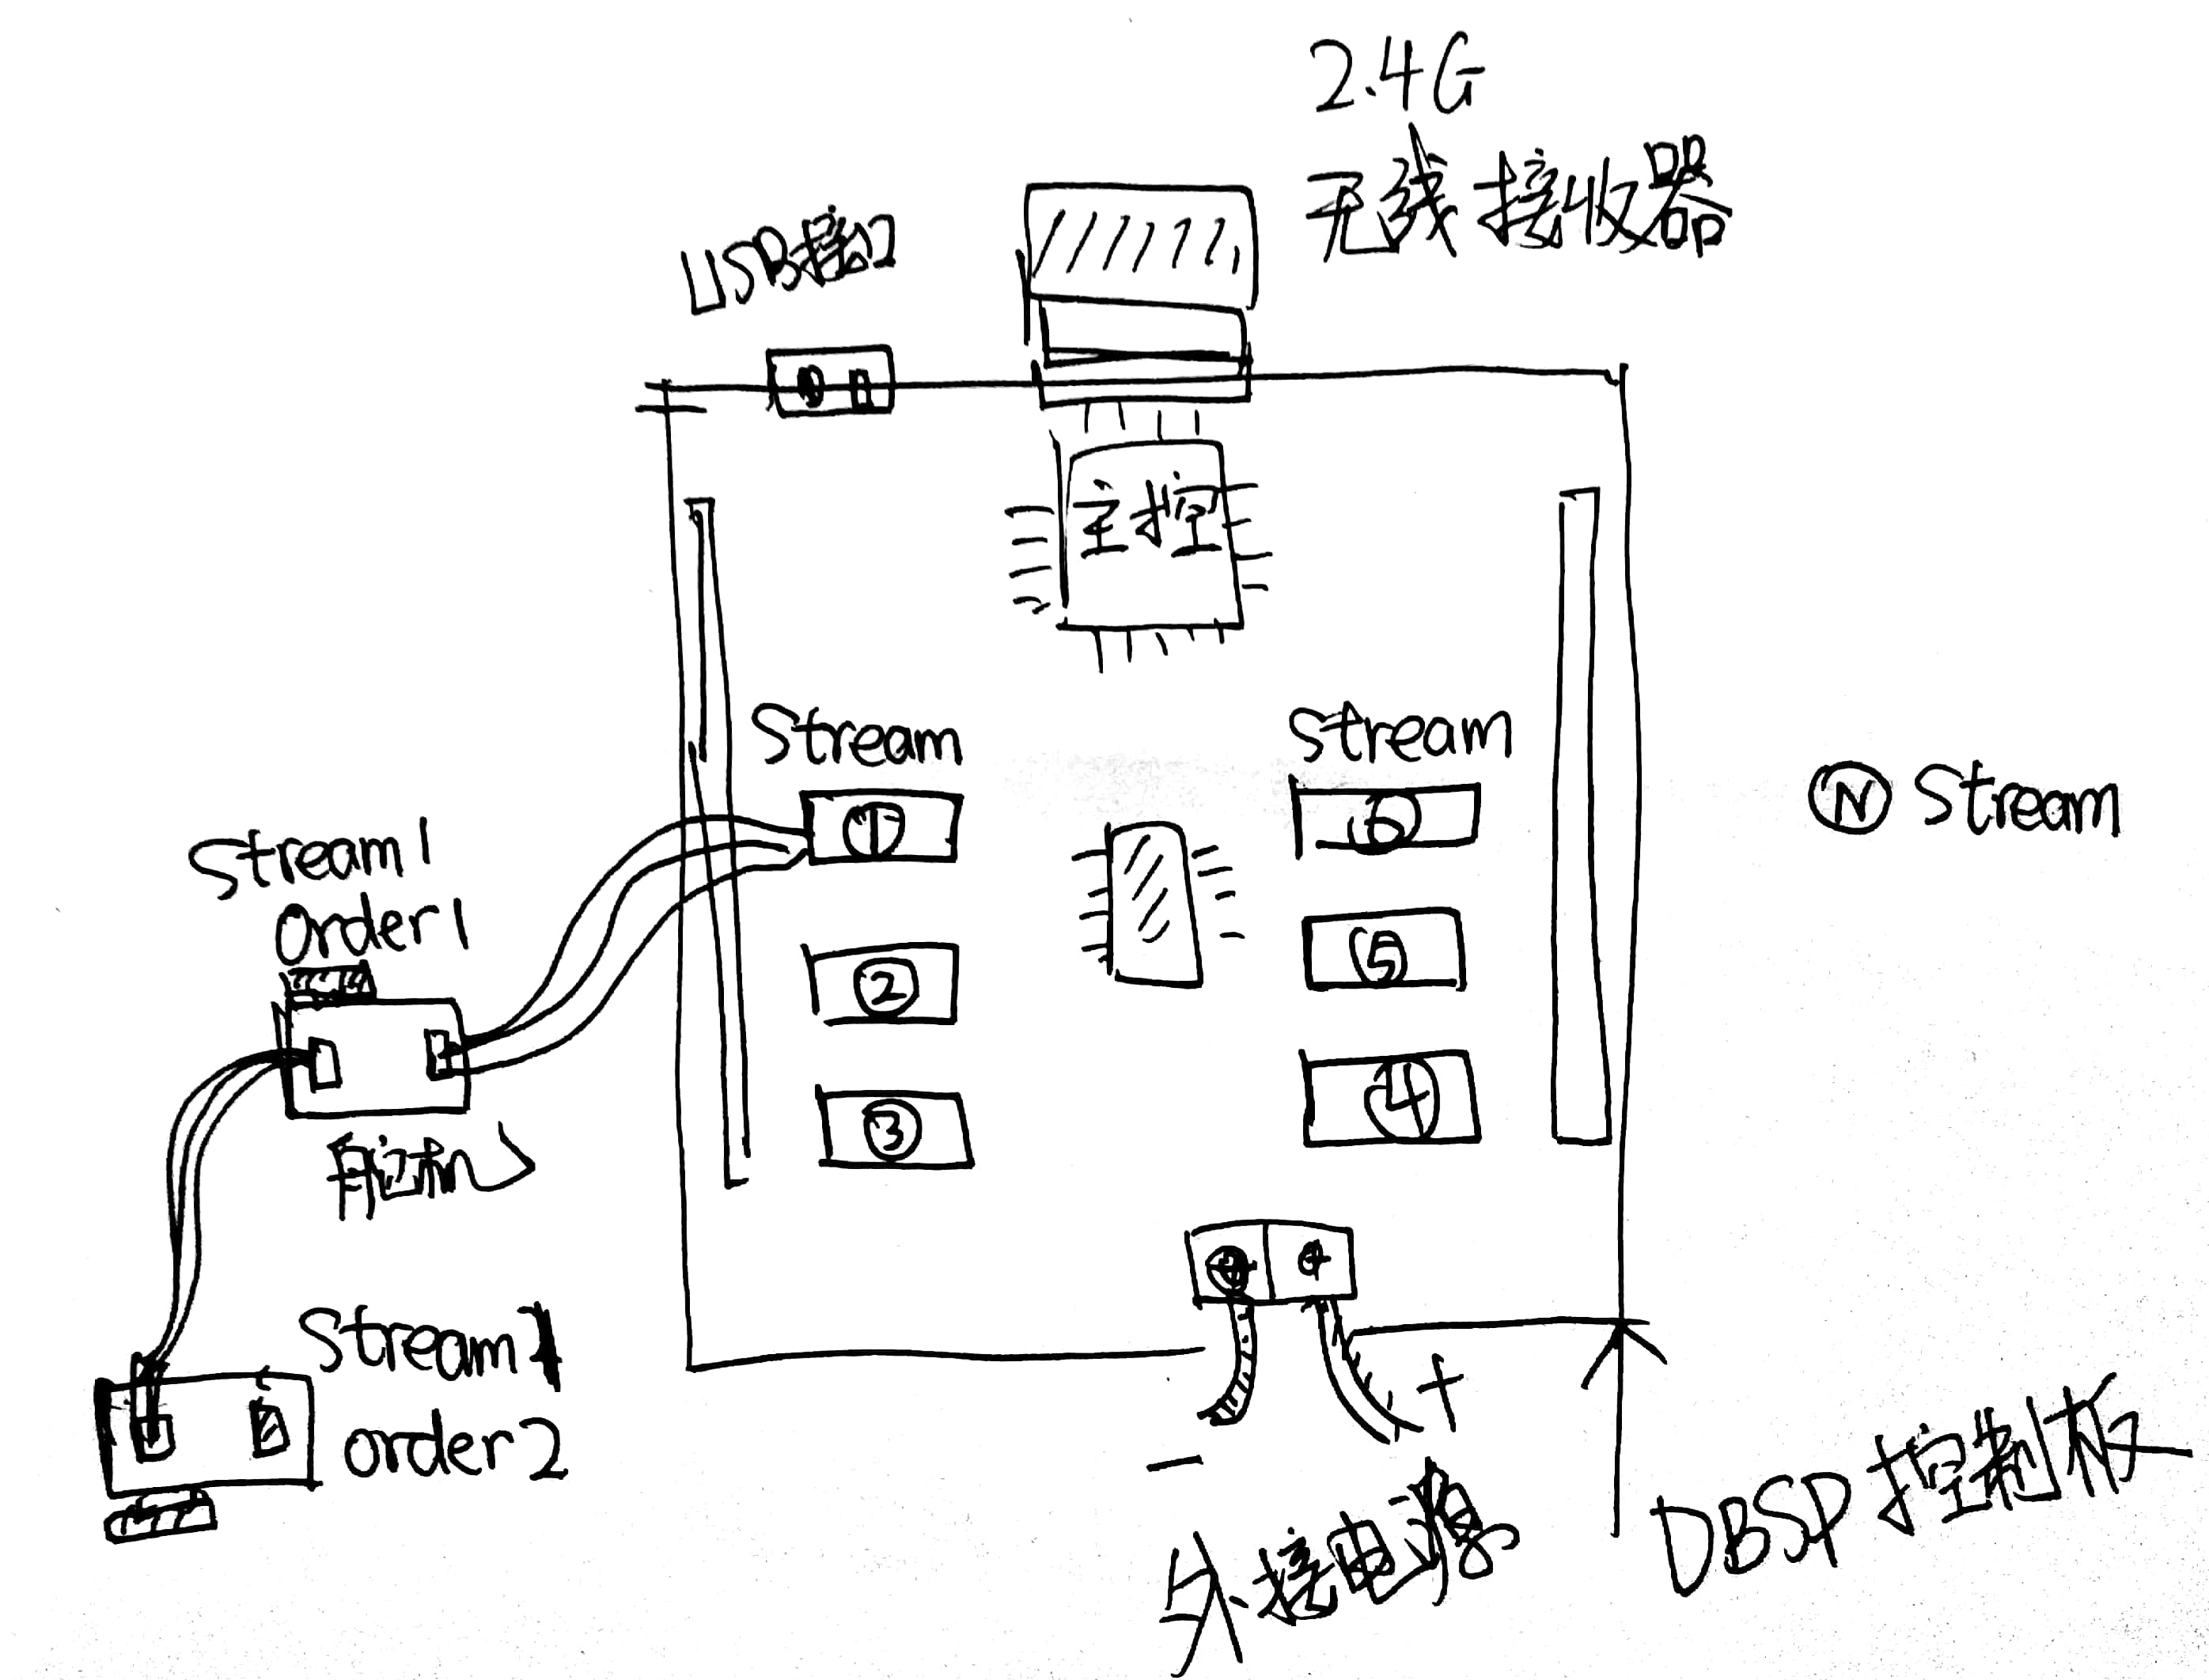 2.4G
无线接收器
USB接口
主控
Stream
Stream
①
⑥
Ⓝ Stream
Stream1
order1
②
⑤
③
④
Stream1
order2
+
-
外接电源
DBSP控制板